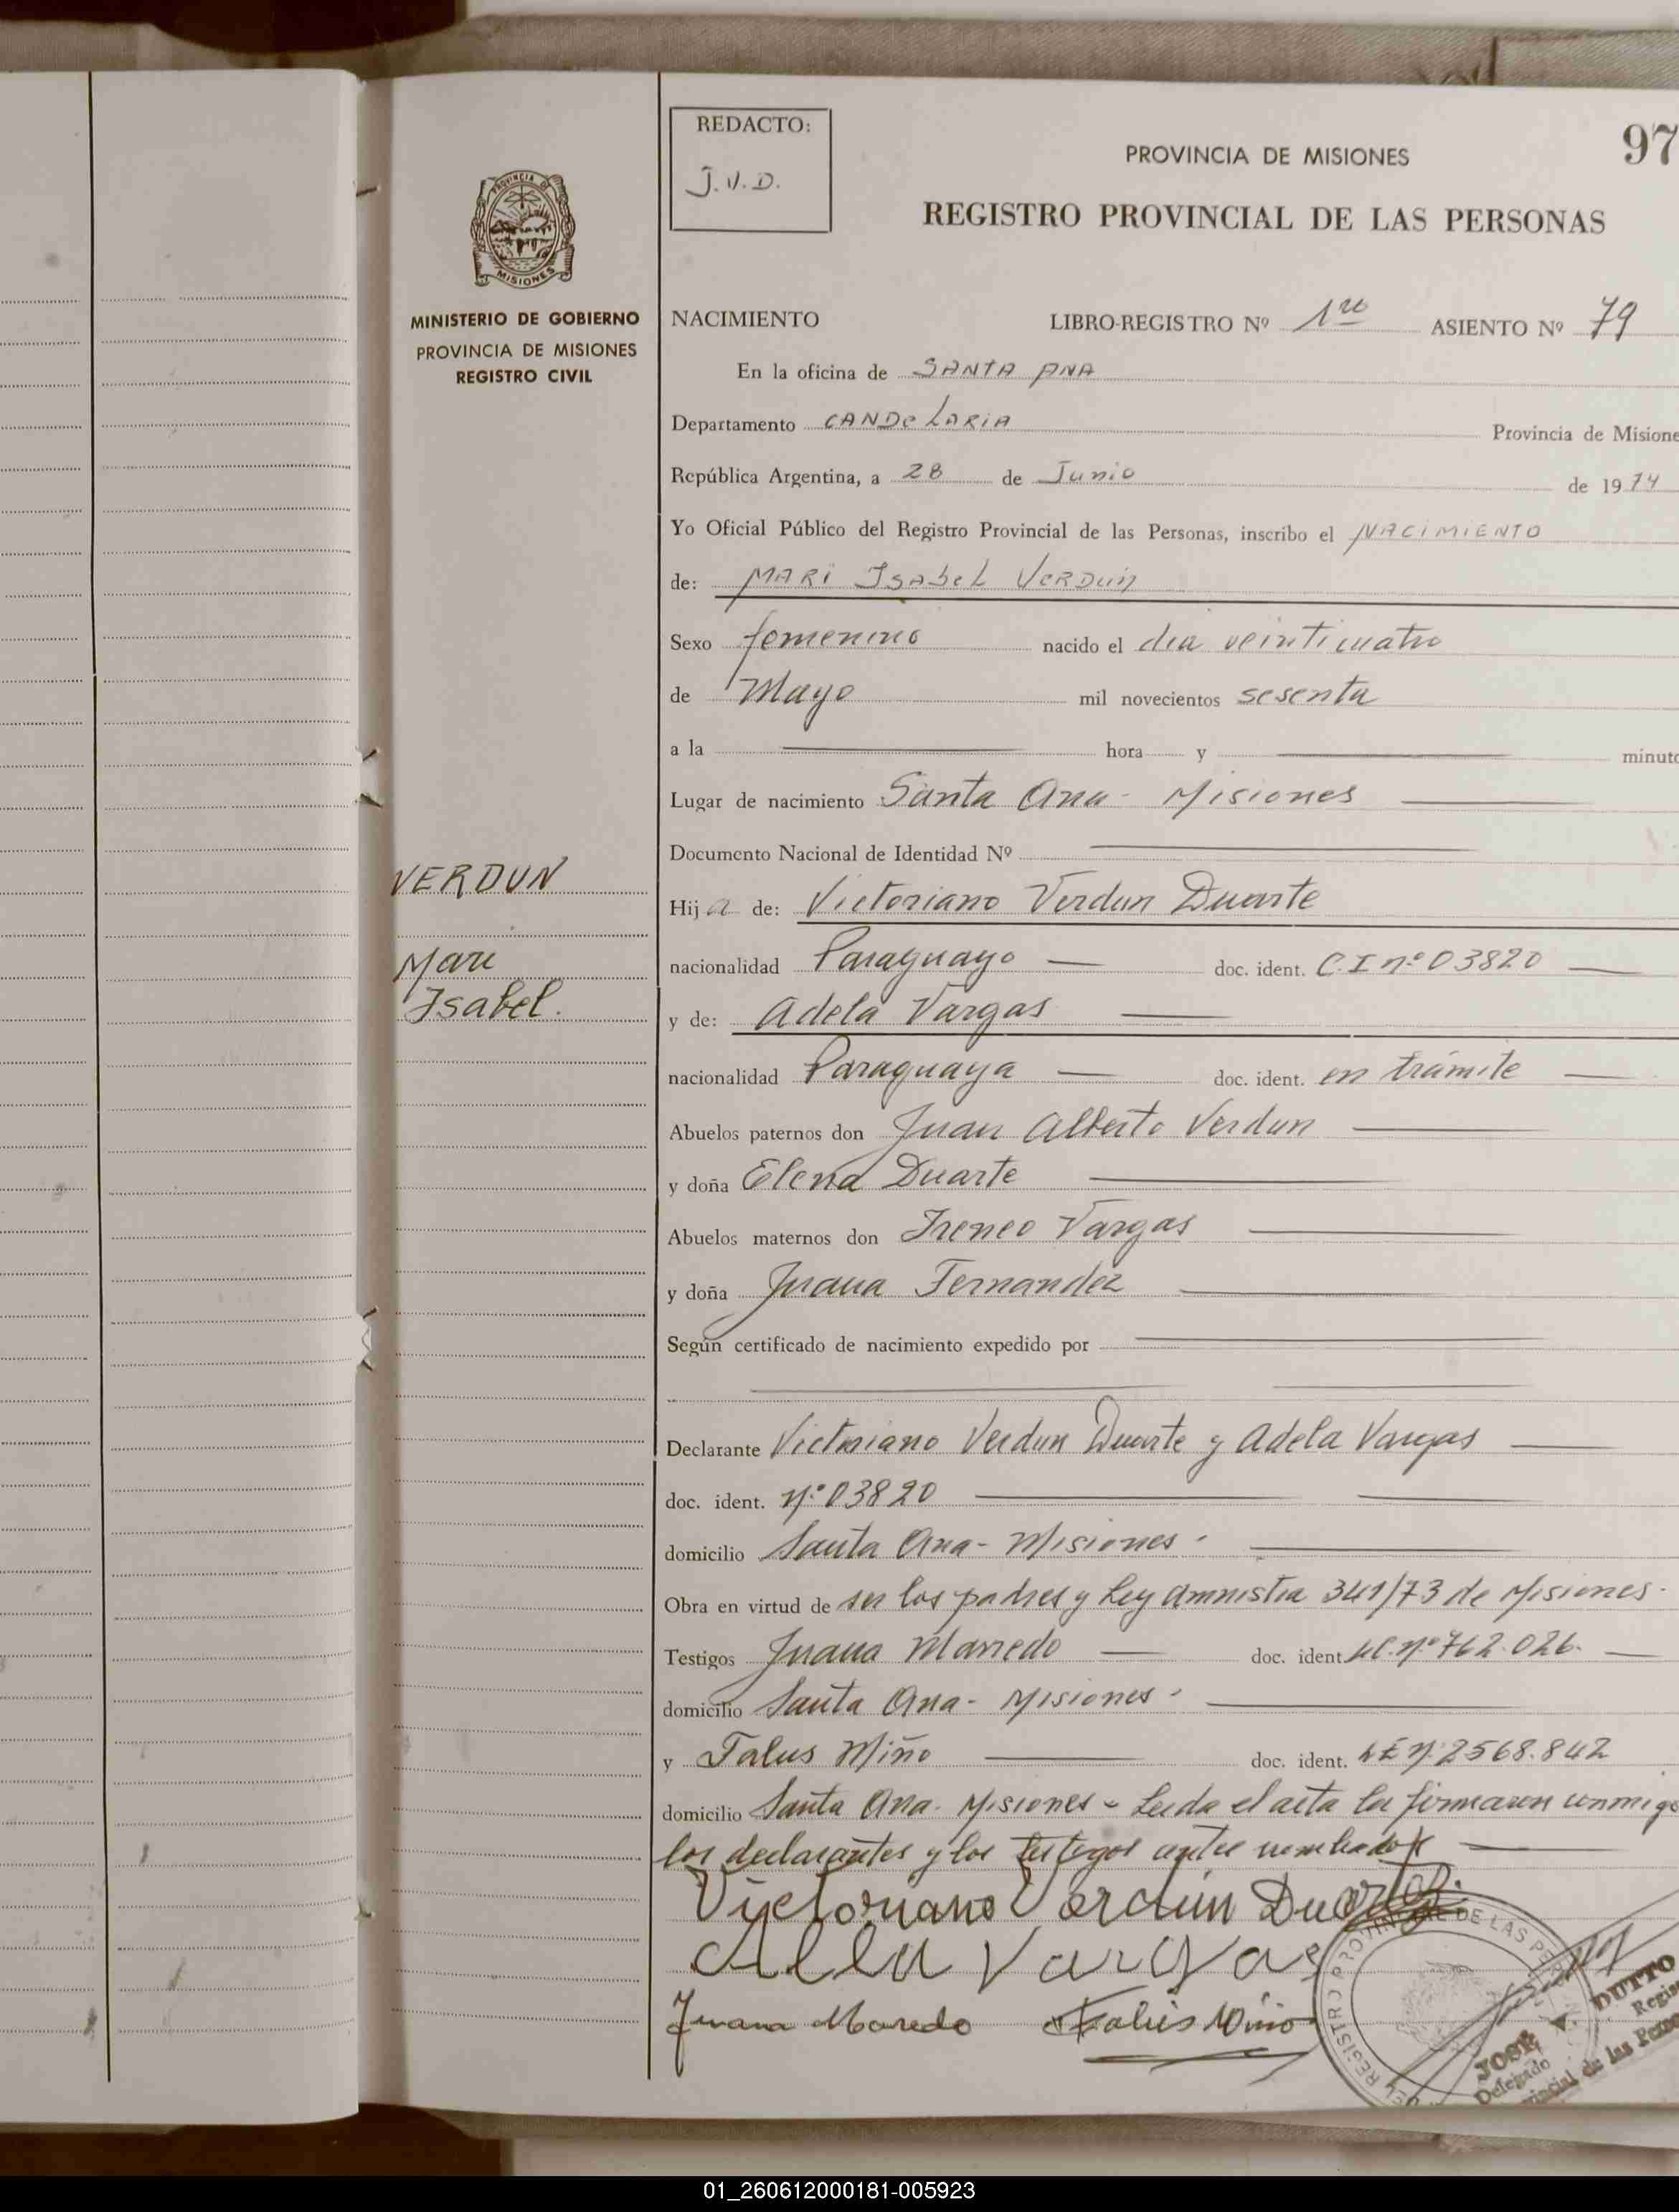 97
REDACTO:
J.V.D.
PROVINCIA DE MISIONES
REGISTRO PROVINCIAL DE LAS PERSONAS
PROVINCIA DE
MISIONES
MINISTERIO DE GOBIERNO
PROVINCIA DE MISIONES
REGISTRO CIVIL
NACIMIENTO LIBRO-REGISTRO Nº 1ro ASIENTO Nº 79
En la oficina de SANTA ANA
Departamento CANDELARIA Provincia de Misione
República Argentina, a 28 de Junio de 1974
Yo Oficial Público del Registro Provincial de las Personas, inscribo el NACIMIENTO
de: MARI ISABEL VERDUN
Sexo femenino nacido el dia veinticuatro
de Mayo mil novecientos sesenta
a la hora y minuto
Lugar de nacimiento Santa Ana - Misiones
Documento Nacional de Identidad Nº
VERDUN
Mari
Isabel.
Hija de: Victoriano Verdun Duarte
nacionalidad Paraguayo doc. ident. C.I nº 03820
y de: Adela Vargas
nacionalidad Paraguaya doc. ident. en trámite
Abuelos paternos don Juan Alberto Verdun
y doña Elena Duarte
Abuelos maternos don Ireneo Vargas
y doña Juana Fernandez
Según certificado de nacimiento expedido por
Declarante Victoriano Verdun Duarte y Adela Vargas
doc. ident. nº 03820
domicilio Santa Ana - Misiones -
Obra en virtud de ser los padres y Ley amnistia 341/73 de Misiones -
Testigos Juana doc. ident nº 762.026.
domicilio Santa Ana - Misiones -
y Talus Miño doc. ident. LE nº 2568.842
domicilio Santa Ana - Misiones - Leida el acta la firmaron conmigo
los declarantes y los testigos antes nombrados
Victoriano Verdun Duarte
Vargas
Juana Miño
REGISTRO PROVINCIAL DE LAS
JOSE V. DUTTO
Delegado Regis
vincial de las Perso
01_260612000181-005923